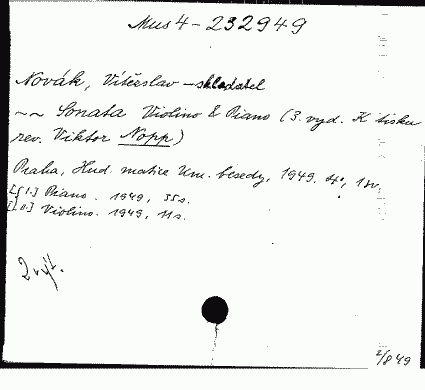 Mus 4 - 232949
Novák, Vítězslav - skladatel
~~ Sonata Violino & Piano (3. vyd. K tisku
rev. Viktor Nopp)
Praha, Hud. matice Um. besedy, 1949. 4°, 1 sv.
[I.] Piano. 1949, 35 s.
[II.] Violino. 1949, 11 s.
2 výt.
2/8 49